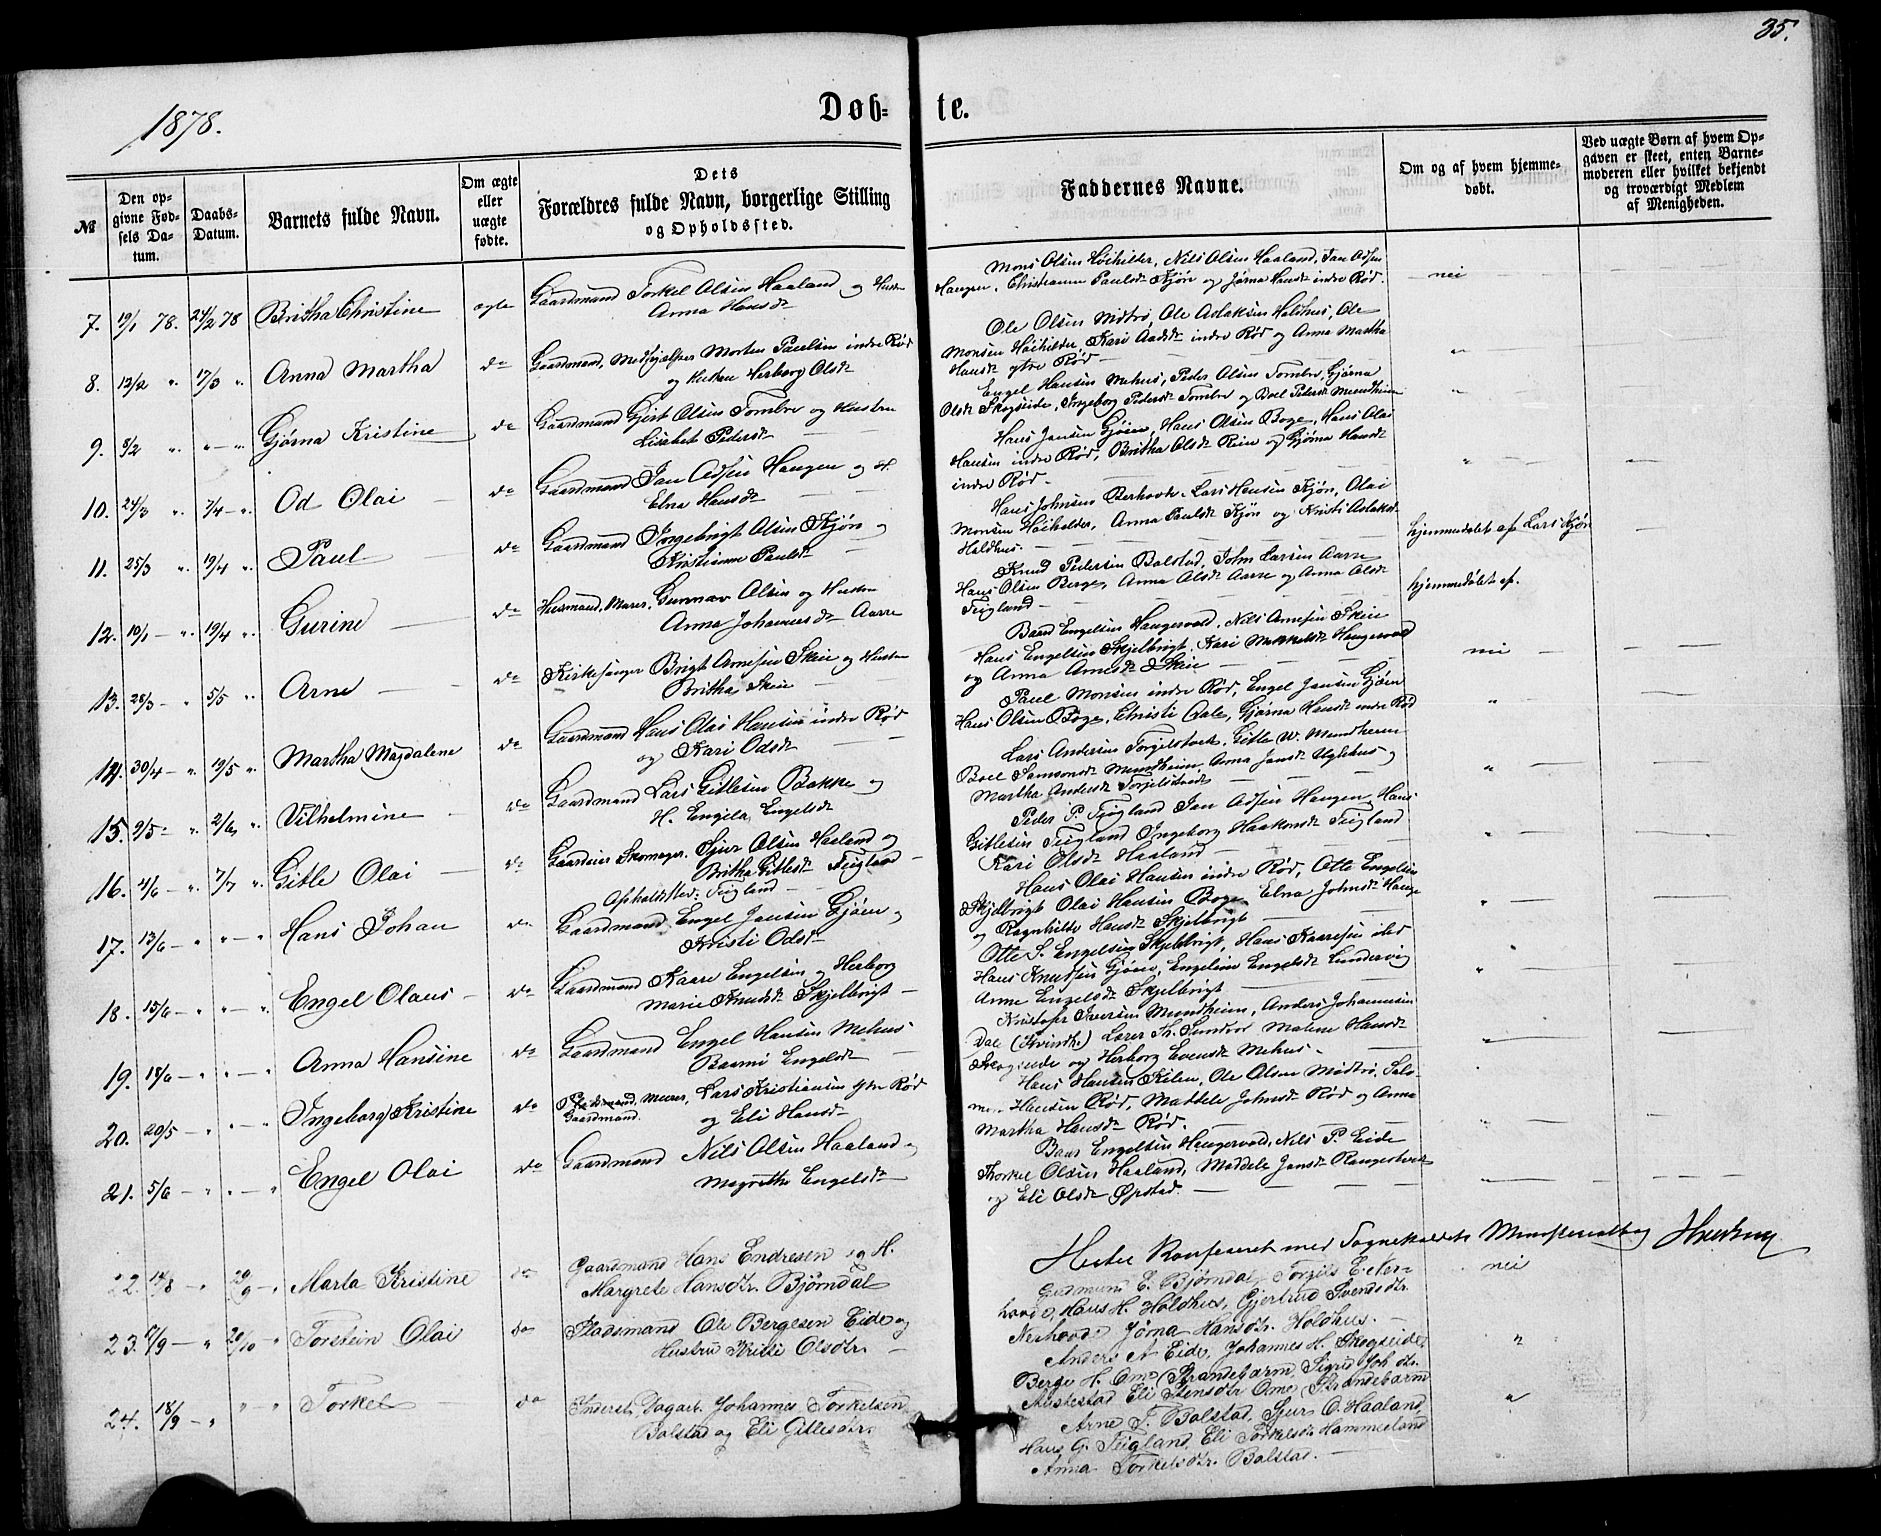 35.
1878.
Døb- te.
№
Den opgivne Fødsels Datum.
Daabs-Datum.
Barnets fulde Navn.
Om ægte eller uægte fødte.
Dets Forældres fulde Navn, borgerlige Stilling og Opholdssted.
Faddernes Navne.
Om og af hvem hjemmedøbt.
Ved uægte Børn af hvem Opgaven er skeet, enten Barnemoderen eller hvilket bekjendt og troværdigt Medlem af Menigheden.
7. 19/1 78. 24/2 78 Britha Christine ægte Gaardmand Torkel Olsen Haaland og Hustru
Anna Hansdt
Mons Olsen Høihilder, Nils Olsen Haaland, Jan Adsen
Haugen, Christianna Paulsdt Kjøn og Jørna Hansdt indre Rød. nei
8. 12/2 " 17/3 " Anna Martha do Gaardmand, Medhjælper Morten Paulsen indre Rød
og Hustru Herborg Olsdt
Ole Olsen Midtrø, Ole Aslaksen Holdhus, Ole
Monsen Høihilder, Kari Aadsdt indre Rød og Anna Martha
Hansdt ytre Rød "
9. 8/2 " " " Gjørna Kristine do Gaardmand Gjert Olsen Tombre og Hustru
Lisebet Pedersdt
Engel Hansen Mehus, Peder Olsen Tombre, Gjørna
Olsdt Skogseide, Ingeborg Pedersdt Tombre og Boel Pedersdt Mundheim "
10. 24/3 " 7/4 " Od Olai do Gaardmand Jan Adsen Haugen og H.
Elna Hansdt
Hans Jansen Gjøen, Hans Olsen Boge, Hans Olai
Hansen indre Rød, Britha Olsdt Rein og Gjørna Hansdt
indre Rød "
11. 25/3 " 19/4 " Paul do Gaardmand Ingebrigt Olsen Kjøn og
Kristianna Paulsdt
Hans Johnsen Berhovde, Lars Hansen Kjøn, Olai
Monsen Høihilder, Anna Paulsdt Kjøn og Kristi Aslaksdt
Holdhus. hjemmedøbt af Lars Kjøn
12. 10/1 " 19/4 " Gurine do Husmand, Murer, Gunnar Olsen og Hustru
Anna Johannesdt Aarre
Knud Pedersen Bolstad, John Larsen Aarre
Hans Olsen Berge, Anna Olsdt Aarre og Anna Olsdt
Teigland hjemmedøbt af.
13. 28/3 " 5/5 " Arne do Kirkesanger Brigt Arnesen Skeie og Hustru
Britha Skeie
Baard Engelsen Haugervold, Nils Arnesen Skeie
Hans Engelsen Skjelbrigt, Kari Mikkelsdt Haugervold
og Anna Arnesdt Skeie nei
14. 30/4 " 19/5 " Martha Magdalene do Gaardmand Hans Olai Hansen indre Rød
og Kari Odsdt
Paul Monsen indre Rød, Engel Jansen Gjøen
Hans Olsen Boge, Christi Dale, Gjørna Hansdt indre Rød "
15. 9/5 " 2/6 " Vilhelmine do Gaardmand Lars Gitlesen Bakke og
H. Engela Engelsdt
Lars Andersen Torjelstvedt, Gitle W. Mundheim
Boel Samsonsdt Mundheim, Anna Jansdt Uglehus og
Martha Andersdt Torjelstvedt "
16. 4/6 " 7/7 " Gitle Olai do Gaardeier Skomager, Sjur Olsen Haaland og
Britha Gitlesdt Teigland
Opholdssted: Teigland
Peder P. Teigland Jan Adsen Haugen, Hans
Gitlesen Teigland Ingeborg Haakonsdt Teigland
Kari Olsdt Haaland "
17. 13/6 " " " Hans Johan do Gaardmand Engel Jansen Gjøen og
Kristi Odsdt
Hans Olai Hansen indre Rød, Otte Engelsen
Skjelbrigt Olai Hansen Boge Elna Johnsdt Hauge
og Ragnhilde Hansdt Skjelbrigt "
18. 15/6 " " " Engel Olaus do Gaardmand Kaare Engelsen og Herborg
Marie Knudsdt Skjelbrigt
Otte S. Engelsen Skjelbrigt, Hans Kaaresen ibd
Hans Knudsen Gjøen, Engeline Engelsdt Lundervig
Anne Engelsdt Skjelbrigt "
19. 18/6 " " " Anna Hansine do Gaardmand Engel Hansen Mehus
Baarni Engelsdt
Kristofer Iversen Mundheim, Anders Johannesen
Dale (Kvindh.) Lærer Th. Sundvor Malene Hansdt
Skogseide og Herborg Evensdt Mehus. "
20. 20/5 " " " Ingeborg Kristine do Pladsmand, Murer, Lars Kristiansen ytre Rød
Gaardmand. og Eli Hansdt
Hans Hansen Kilen, Ole Olsen Midtrø, Salo-
mon Hansen Rød, Maddele Johnsdt Rød og Anna
Martha Hansdt Rød. "
21. 5/6 " " " Engel Olai do Gaardmand Nils Olsen Haaland og
Magrethe Engelsdt
Baar Engelsen Haugervold, Nils P. Eide
Thorkel Olsen Haaland, Maddele Jansdt Rangestvedt
og Eli Olsdt Øpstad. "
Hertil Konfereret med Sognekaldets Ministerialbog
22. 14/8 " 29/9 " Marta Kristine do Gaardmand Hans Endresen og H.
Margrete Hansdtr. Bjørndal
Gudmund E. Bjørndal, Torgils E. Ner-
hovde, Hans H. Holdhus, Gjertrud Svendsdtr.
Nerhovde, Jørna Hansdtr. Holdhus. nei
23. 7/9 " 20/10 " Torstein Olai do Pladsmand Ole Bergesen Eide og
Hustru Kristi Olsdtr.
Anders A Eide, Johannes H. Skogseide,
Berge H. Ome (Strandebarm, Sigrid Joh.dtr.
Austestad Eli Stensdtr Ome (Strandebarm "
24. 18/9 " " " Torkel do Inderst, Dagarb. Johannes Torkelsen
Bolstad og Eli Gitlesdtr.
Arne T. Bolstad, Sjur O. Haaland,
Hans G. Teigland, Eli Torkelsdtr Hammeland
Anna Torkelsdtr. Bolstad. "